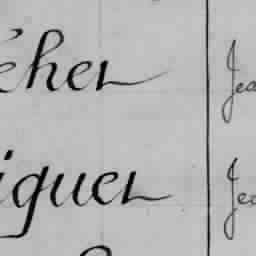 éher Jea
iguer Jea